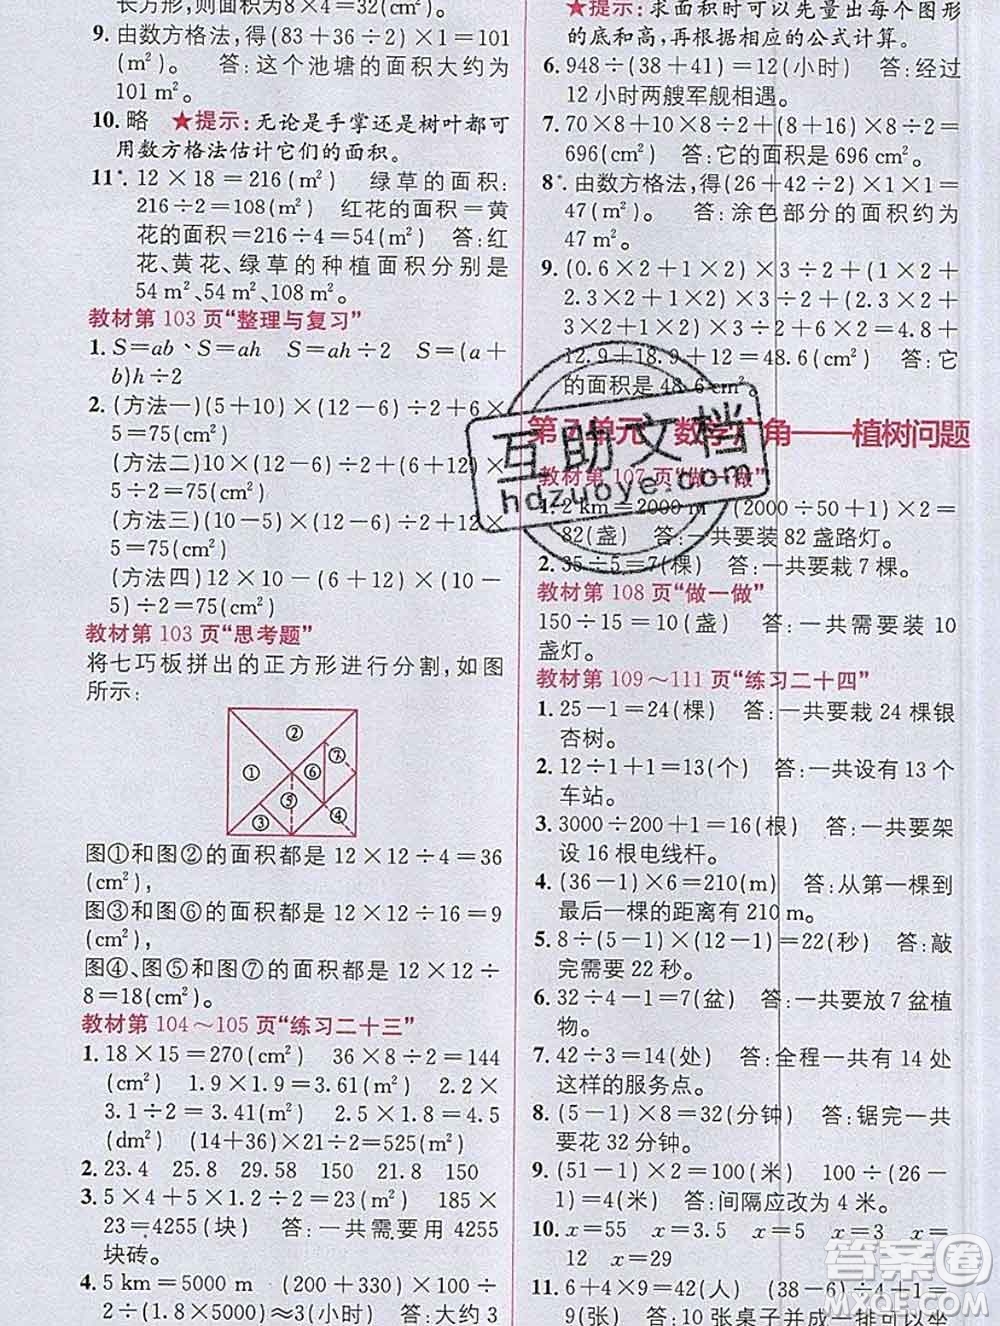 长方形,则面积为8×4=32(cm²)。
9. 由数方格法,得(83+36÷2)×1=101
(m²) 答:这个池塘的面积大约为
101 m²。
10. 略 ★提示:无论是手掌还是树叶都可
用数方格法估计它们的面积。
11*. 12×18=216(m²) 绿草的面积:
216÷2=108(m²) 红花的面积=黄
花的面积=216÷4=54(m²) 答:红
花、黄花、绿草的种植面积分别是
54 m²、54 m²、108 m²。
教材第 103 页“整理与复习”
1. S=ab、S=ah S=ah÷2 S=(a+
b)h÷2
2. (方法一)(5+10)×(12-6)÷2+6×
5=75(cm²)
(方法二)10×(12-6)÷2+(6+12)×
5÷2=75(cm²)
(方法三)(10-5)×(12-6)÷2+12×
5=75(cm²)
(方法四)12×10-(12-6)×(10-
5)÷2=75(cm²)
教材第 103 页“思考题”
将七巧板拼出的正方形进行分割,如图
所示:
②
⑦
①
⑥
⑤
④
③
图①和图②的面积都是12×12÷4=36
(cm²),
图③和图⑥的面积都是12×12÷16=9
(cm²),
图④、图⑤和图⑦的面积都是12×12÷
8=18(cm²)。
教材第 104～105 页“练习二十三”
1. 18×15=270(cm²) 36×8÷2=144
(cm²) 1.9×1.9=3.61(cm²) 2.2×
3.1÷2=3.41(m²) 2.5×1.8=4.5
(dm²) (14+36)×21÷2=525(m²)
2. 23.4 25.8 29.58 150 21.8 150
3. 5×4+5×1.2÷2=23(m²) 185×
23=4255(块) 答:一共要用 4255
块砖。
4. 5 km=5000 m (2400+100)×100÷
2÷(1.8×5000)≈3(小时) 答:大约 3
★提示:求面积时可以先量出每个图形
的底和高,再根据相应的公式计算。
6. 948÷(38+41)=12(小时) 答:经过
12 小时两艘军舰相遇。
7. 70×8+10×8÷2+(8+16)×8÷2=
696(cm²) 答:它的面积是 696 cm²。
8*. 由数方格法,得(26+42÷2)×1=
47(m²) 答:涂色部分的面积约为
47 m²。
9. (0.6×2+1×2)×3÷2+(1×2+
2.3×2)×3÷2+(2.3×2+4×2)×
3÷2+(4×2+2.3×2)×3÷2=4.8+
12.9+18.9+12=48.6(cm²) 答:它
的面积是 48.6 cm²。
第 7 单元 数学广角——植树问题
教材第 107 页“做一做”
1. 2 km=2000 m (2000÷50+1)×2=
82(盏) 答:一共要装 82 盏路灯。
2. 35÷5=7(棵) 答:一共要栽 7 棵。
教材第 108 页“做一做”
150÷15=10(盏) 答:一共需要装 10
盏灯。
教材第 109～111 页“练习二十四”
1. 25-1=24(棵) 答:一共要栽 24 棵银
杏树。
2. 12÷1+1=13(个) 答:一共设有 13 个
车站。
3. 3000÷200+1=16(根) 答:一共要架
设 16 根电线杆。
4. (36-1)×6=210(m) 答:从第一棵到
最后一棵的距离有 210 m。
5. 8÷(5-1)×(12-1)=22(秒) 答:敲
完需要 22 秒。
6. 32÷4-1=7(盆) 答:一共要放 7 盆植
物。
7. 42÷3=14(处) 答:全程一共有 14 处
这样的服务点。
8. (5-1)×8=32(分钟) 答:锯完一共
要花 32 分钟。
9. (51-1)×2=100(米) 100÷(26-
1)=4(米) 答:间隔应改为 4 米。
10. x=55 x=3.4 x=5 x=3 x=
12 x=29
11. 6+4×9=42(人) (38-6)÷4+1=
9(张) 答:10 张桌子并成一排可以坐
互助文档
hdzuoye.com
答案圈
MXQE.COM